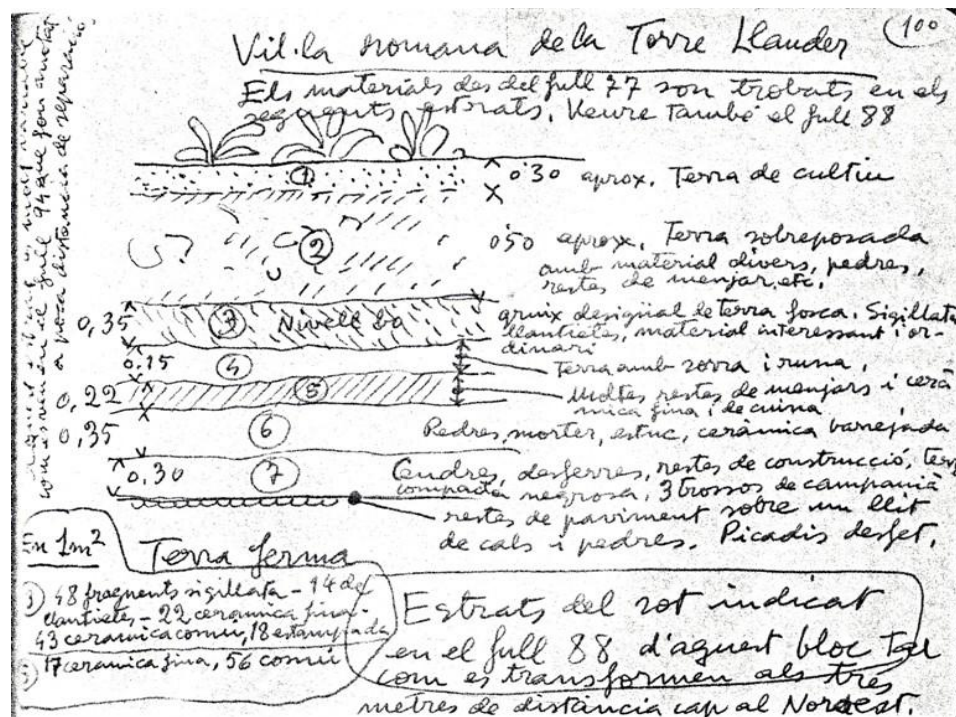 100
Vil·la romana de la Torre Llauder
Els materials des del full 77 son trobats en els
següents estrats. Veure També el full 88
1
0'30 aprox. Terra de cultiu
2
0'50 aprox. Terra sobreposada
amb material divers, pedres,
restes de menjar, etc.
0,35
3 Nivell bo
gruix desigual de terra fosca. Sigillata
llantietes, material interessant i or-
dinari
0,15
4
Terra amb sorra i runa
0,22
5
Moltes restes de menjars i cerà
mica fina i de cuina
0,35
6
Pedres, morter, estuc, ceràmica barrejada
0,30
7
Cendres, desferres, restes de construcció,
compacta negrosa, 3 trossos de campanià
restes de paviment sobre un llit
de cals i pedres. Picadis desfet.
En 1m²
Terra ferma
48 fragments sigillata - 14 de
llantietes - 22 ceramica fina -
43 ceramica comú, 18 estampada
17 ceramica fina, 56 comú
Estrats del sot indicat
en el full 88 d'aquest bloc Tal
com es transformen als tres
metres de distància cap al Nordest.
aquest estrat és molt
com es resumen el full 94 que fou anotat
a poca distància de separació